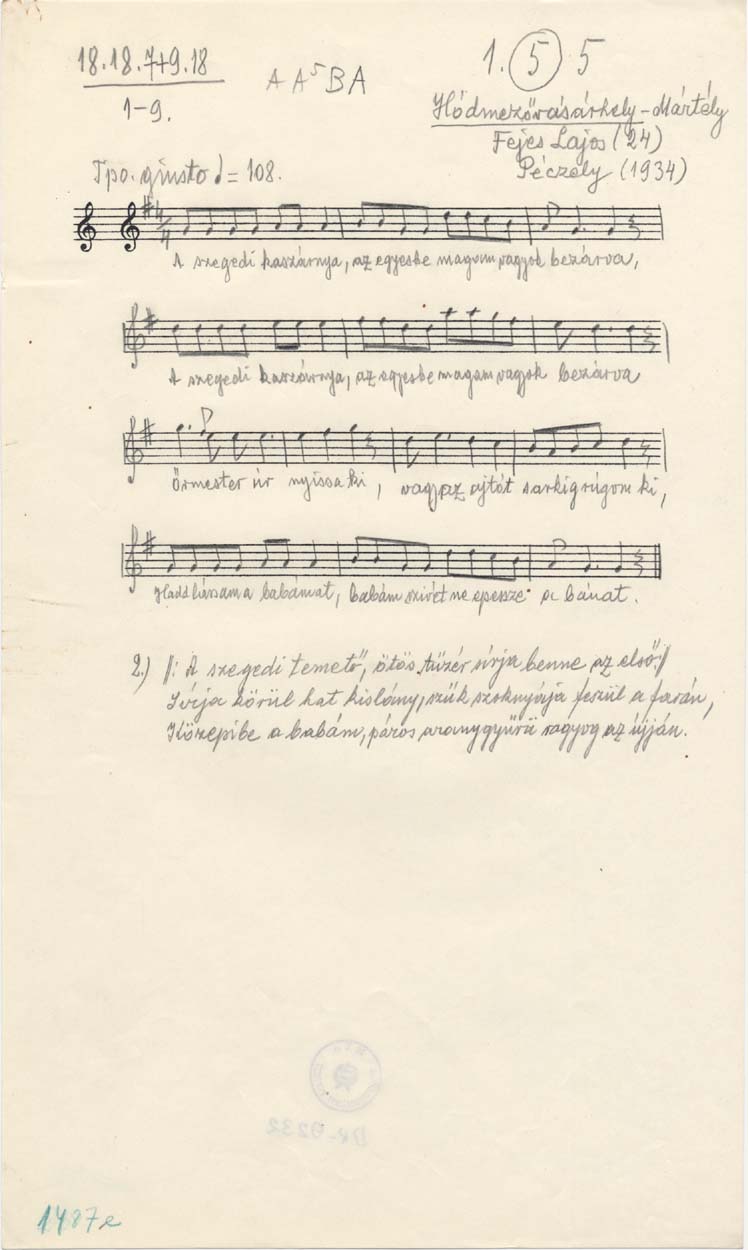 18.18.7+9.18
1-9.
A A⁵ B A
1. 5 5
Hódmezővásárhely-Mártély
Fejes Lajos (24)
Péczely (1934)
Tpo. giusto ♩= 108.
A szegedi kaszárnya, az egyesbe magam vagyok bezárva,
A szegedi kaszárnya, az egyesbe magam vagyok bezárva
Őrmester úr nyissa ki, vagy az ajtót sarkig rúgom ki,
Hadd lássam a babámat, babám szívét ne epessze a bánat.
2.) /: A szegedi temető, ötös tüzér sírja benne az első:/
Sírja körül hat kislány, szűk szoknyája feszül a farán,
Közepibe a babám, páros aranygyűrű ragyog az újján.
1487e